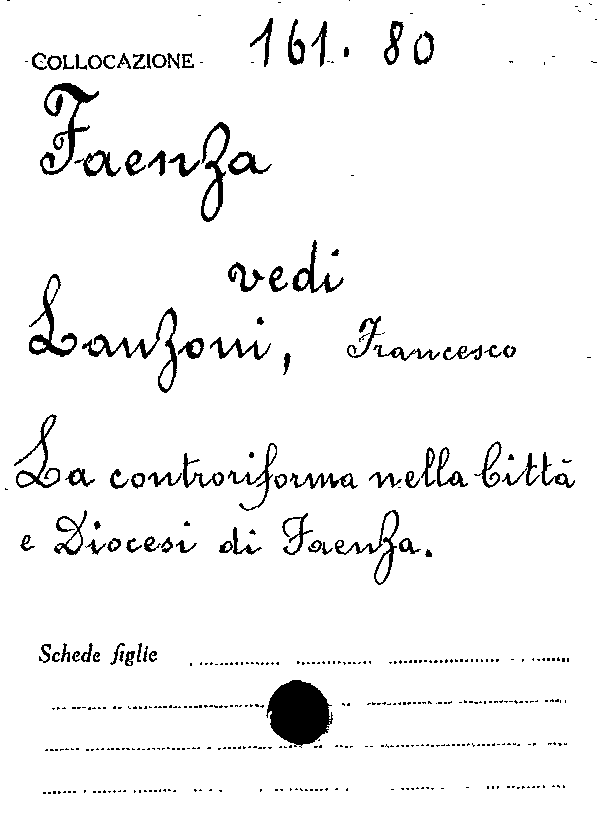 COLLOCAZIONE 161. 80
Faenza
vedi
Lanzoni, Francesco
La controriforma nella Città
e Diocesi di Faenza.
Schede figlie